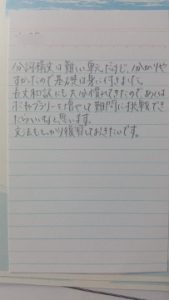 分詞構文は難しい単元だけど、分かりや
すかったので基礎は身に付きました。
長文和訳にも大分慣れてきたので、あとは
ボキャブラリーを増やして難問に挑戦でき
たらいいなと思います。
文法もしっかり復習しておきたいです。